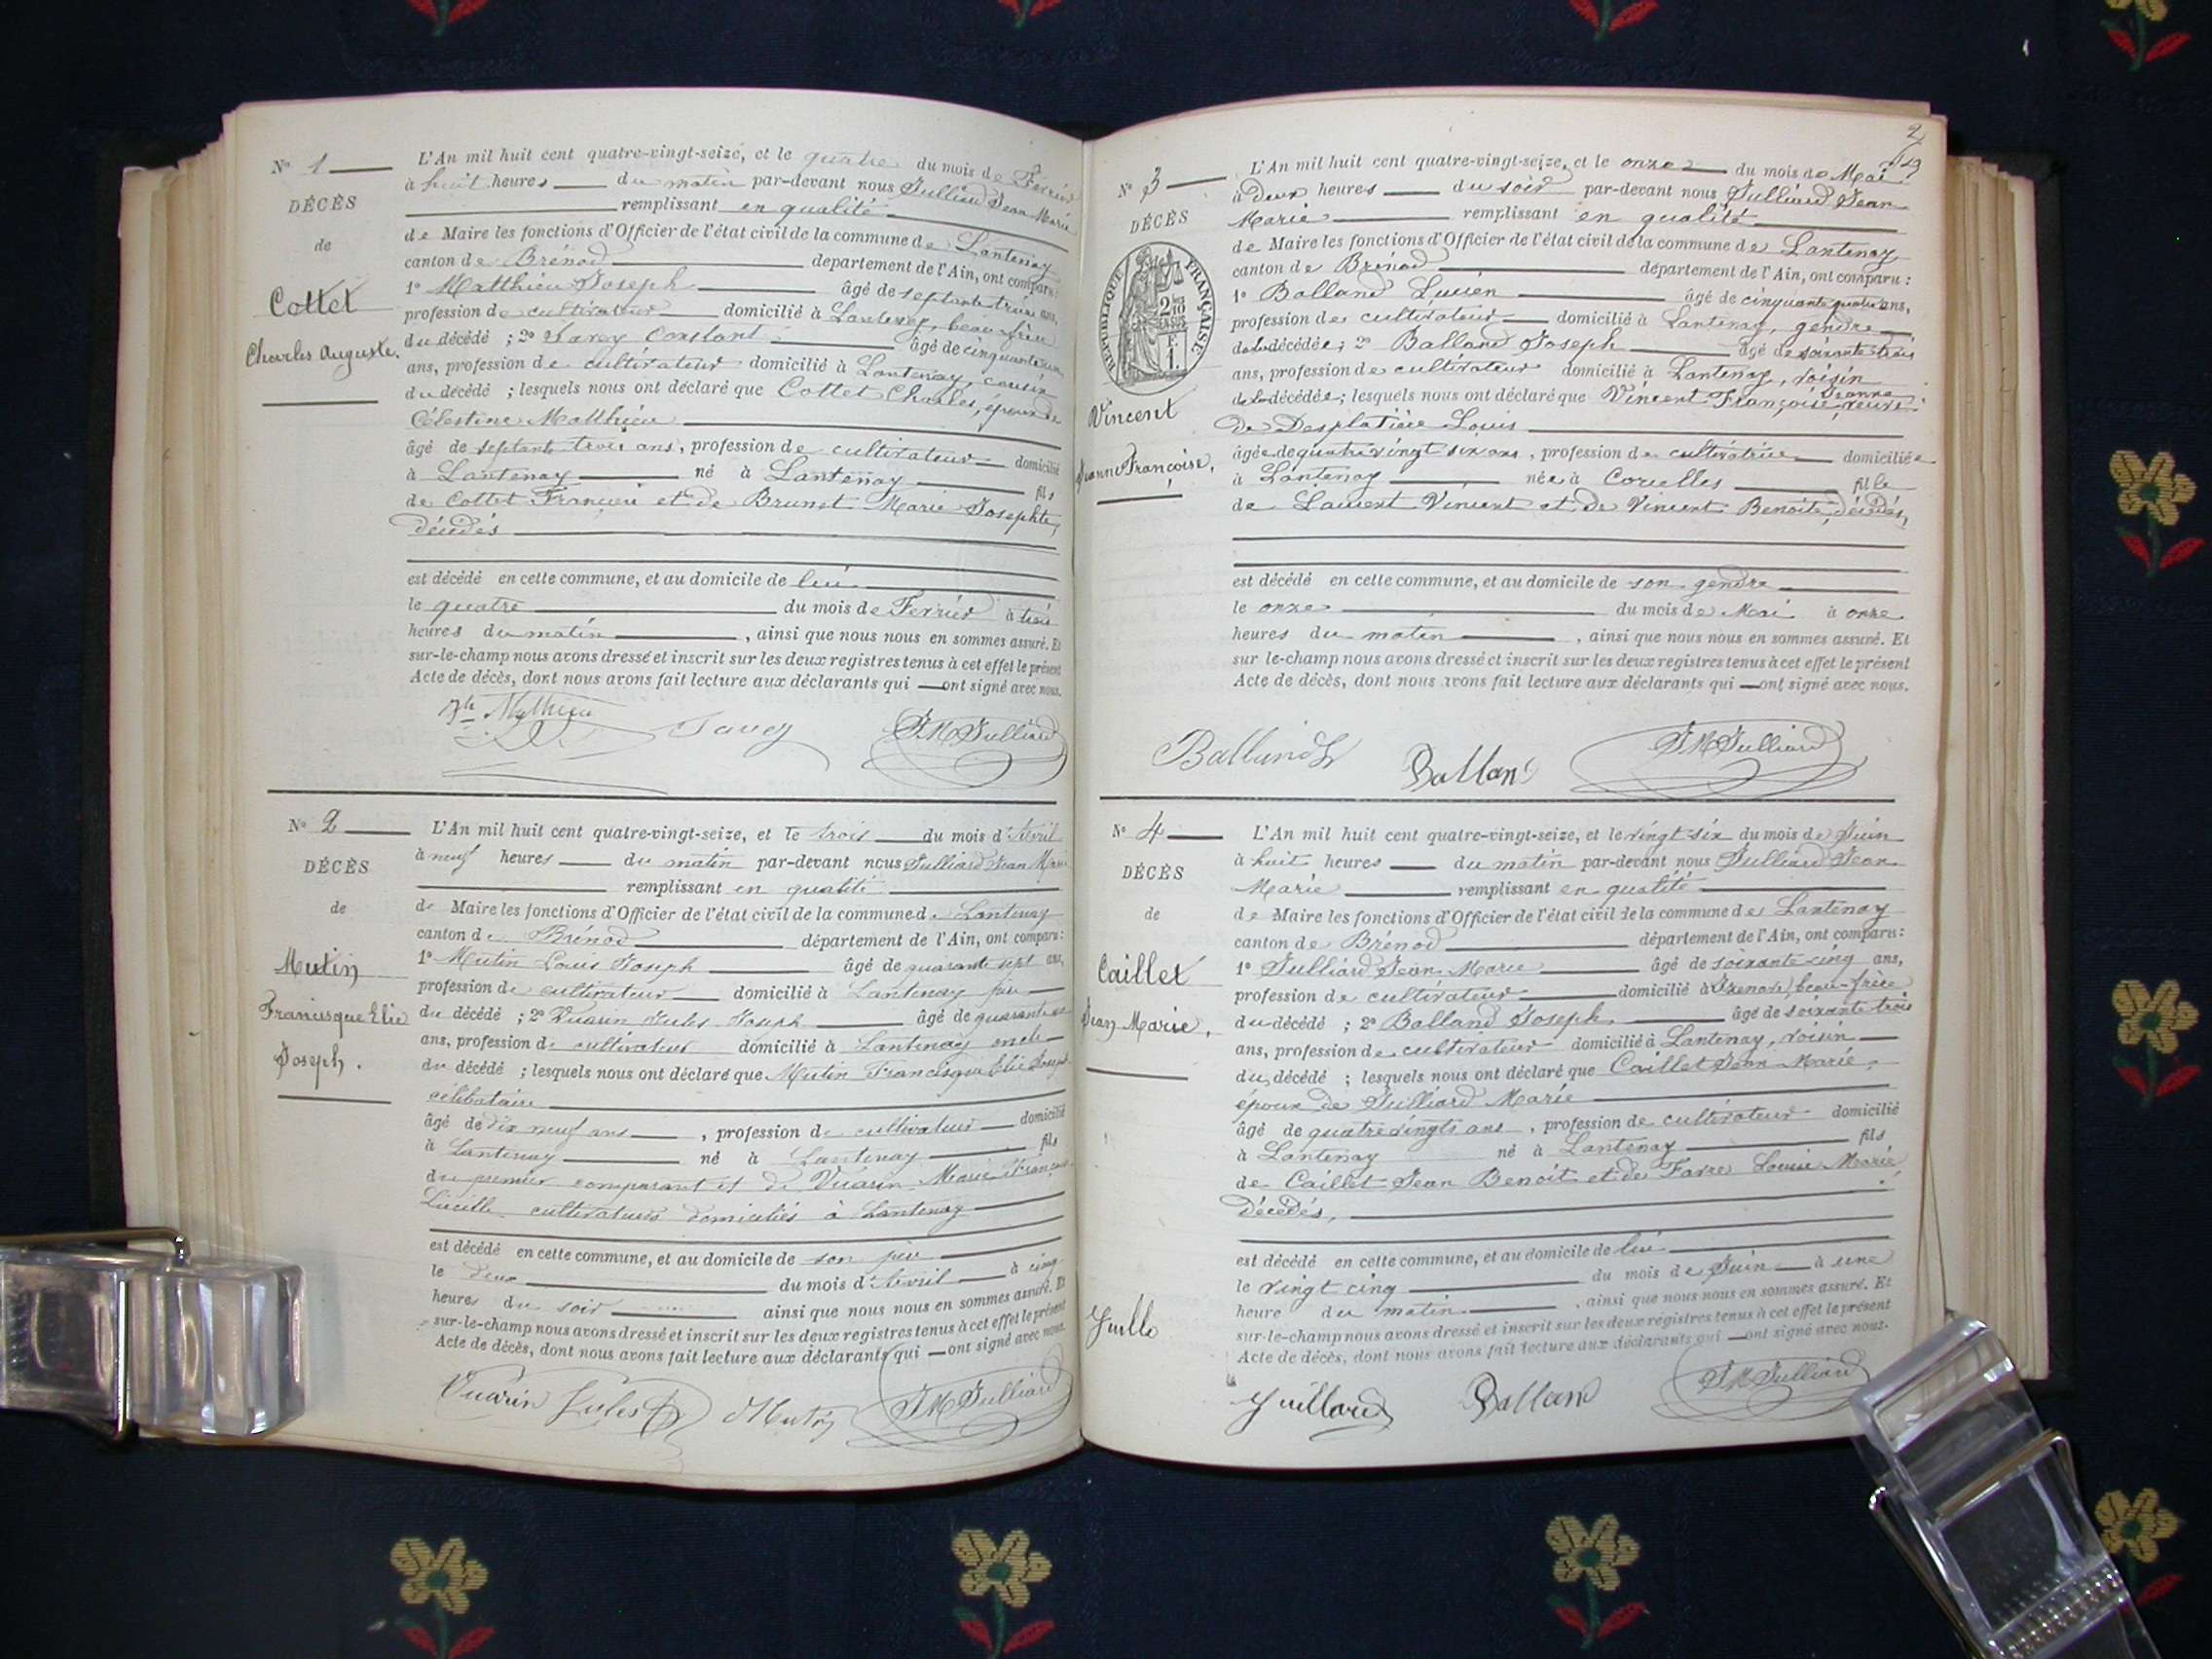 N° 1
DÉCÈS
de
Cottet
Charles Auguste.
L'An mil huit cent quatre-vingt-seize, et le quatre du mois de Février
à huit heures du matin par-devant nous Julliard Jean Marie
remplissant en qualité
de Maire les fonctions d'Officier de l'état civil de la commune de Lantenay
canton de Brénod département de l'Ain, ont comparu :
1° Matthieu Joseph âgé de septante trois ans,
profession de cultivateur domicilié à Lantenay, beau-frère
du décédé ; 2° Savey Constant âgé de cinquante
ans, profession de cultivateur domicilié à Lantenay, cousin
du décédé ; lesquels nous ont déclaré que Cottet Charles, époux de
Célestine Matthieu
âgé de septante trois ans, profession de cultivateur domicilié
à Lantenay né à Lantenay fils
de Cottet François et de Brunet Marie Josephte,
décédés
est décédé en cette commune, et au domicile de lui
le quatre du mois de Février à trois
heures du matin , ainsi que nous nous en sommes assuré. Et
sur-le-champ nous avons dressé et inscrit sur les deux registres tenus à cet effet le présent
Acte de décès, dont nous avons fait lecture aux déclarants qui ont signé avec nous.
Jh Mathieu Savey JM Julliard
N° 2
DÉCÈS
de
Mutin
Francisque Elie
Joseph.
L'An mil huit cent quatre-vingt-seize, et le trois du mois d'Avril
à neuf heures du matin par-devant nous Julliard Jean Marie
remplissant en qualité
de Maire les fonctions d'Officier de l'état civil de la commune de Lantenay
canton de Brénod département de l'Ain, ont comparu :
1° Mutin Louis Joseph âgé de quarante sept ans,
profession de cultivateur domicilié à Lantenay père
du décédé ; 2° Vuarin Jules Joseph âgé de quarante
ans, profession de cultivateur domicilié à Lantenay oncle
du décédé ; lesquels nous ont déclaré que Mutin Francisque Elie Joseph
célibataire
âgé de dix neuf ans , profession de cultivateur domicilié
à Lantenay né à Lantenay fils
du premier comparant et de Vuarin Marie Françoise
Lucille cultivateurs domiciliés à Lantenay
est décédé en cette commune, et au domicile de son père
le deux du mois d'Avril à cinq
heures du soir ainsi que nous nous en sommes assuré. Et
sur-le-champ nous avons dressé et inscrit sur les deux registres tenus à cet effet le présent
Acte de décès, dont nous avons fait lecture aux déclarants qui ont signé avec nous.
Vuarin Jules Mutin JM Julliard
2
N° 3
DÉCÈS
RÉPUBLIQUE FRANÇAISE
2/10 EN SUS
F. 1.
Vincent
Jeanne Françoise,
L'An mil huit cent quatre-vingt-seize, et le onze du mois de Mai
à deux heures du soir par-devant nous Julliard Jean
Marie remplissant en qualité
de Maire les fonctions d'Officier de l'état civil de la commune de Lantenay
canton de Brénod département de l'Ain, ont comparu :
1° Balland Lucien âgé de cinquante quatre ans,
profession de cultivateur domicilié à Lantenay, gendre
de la décédée ; 2° Balland Joseph âgé de soixante trois
ans, profession de cultivateur domicilié à Lantenay, voisin
de la décédée ; lesquels nous ont déclaré que Vincent Françoise Jeanne veuve
de Desplatière Louis
âgée de quatre vingt six ans , profession de cultivatrice domiciliée
à Lantenay née à Corcelles fille
de Laurent Vincent et de Vincent Benoîte, décédés,
est décédé en cette commune, et au domicile de son gendre
le onze du mois de Mai à onze
heures du matin , ainsi que nous nous en sommes assuré. Et
sur le-champ nous avons dressé et inscrit sur les deux registres tenus à cet effet le présent
Acte de décès, dont nous avons fait lecture aux déclarants qui ont signé avec nous.
Balland L Balland JM Julliard
N° 4
DÉCÈS
de
Caillet
Jean Marie,
L'An mil huit cent quatre-vingt-seize, et le vingt-six du mois de Juin
à huit heures du matin par-devant nous Julliard Jean
Marie remplissant en qualité
de Maire les fonctions d'Officier de l'état civil de la commune de Lantenay
canton de Brénod département de l'Ain, ont comparu :
1° Julliard Jean Marie âgé de soixante cinq ans,
profession de cultivateur domicilié à beau-frère
du décédé ; 2° Balland Joseph, âgé de soixante trois
ans, profession de cultivateur domicilié à Lantenay, voisin
du décédé ; lesquels nous ont déclaré que Caillet Jean Marie,
époux de Julliard Marie
âgé de quatre vingts ans , profession de cultivateur domicilié
à Lantenay né à Lantenay fils
de Caillet Jean Benoit et de Favre Louise Marie,
décédés,
est décédé en cette commune, et au domicile de lui
le vingt cinq du mois de Juin à une
heure du matin , ainsi que nous nous en sommes assuré. Et
sur-le-champ nous avons dressé et inscrit sur les deux registres tenus à cet effet le présent
Acte de décès, dont nous avons fait lecture aux déclarants qui ont signé avec nous.
Juillard Balland JM Julliard